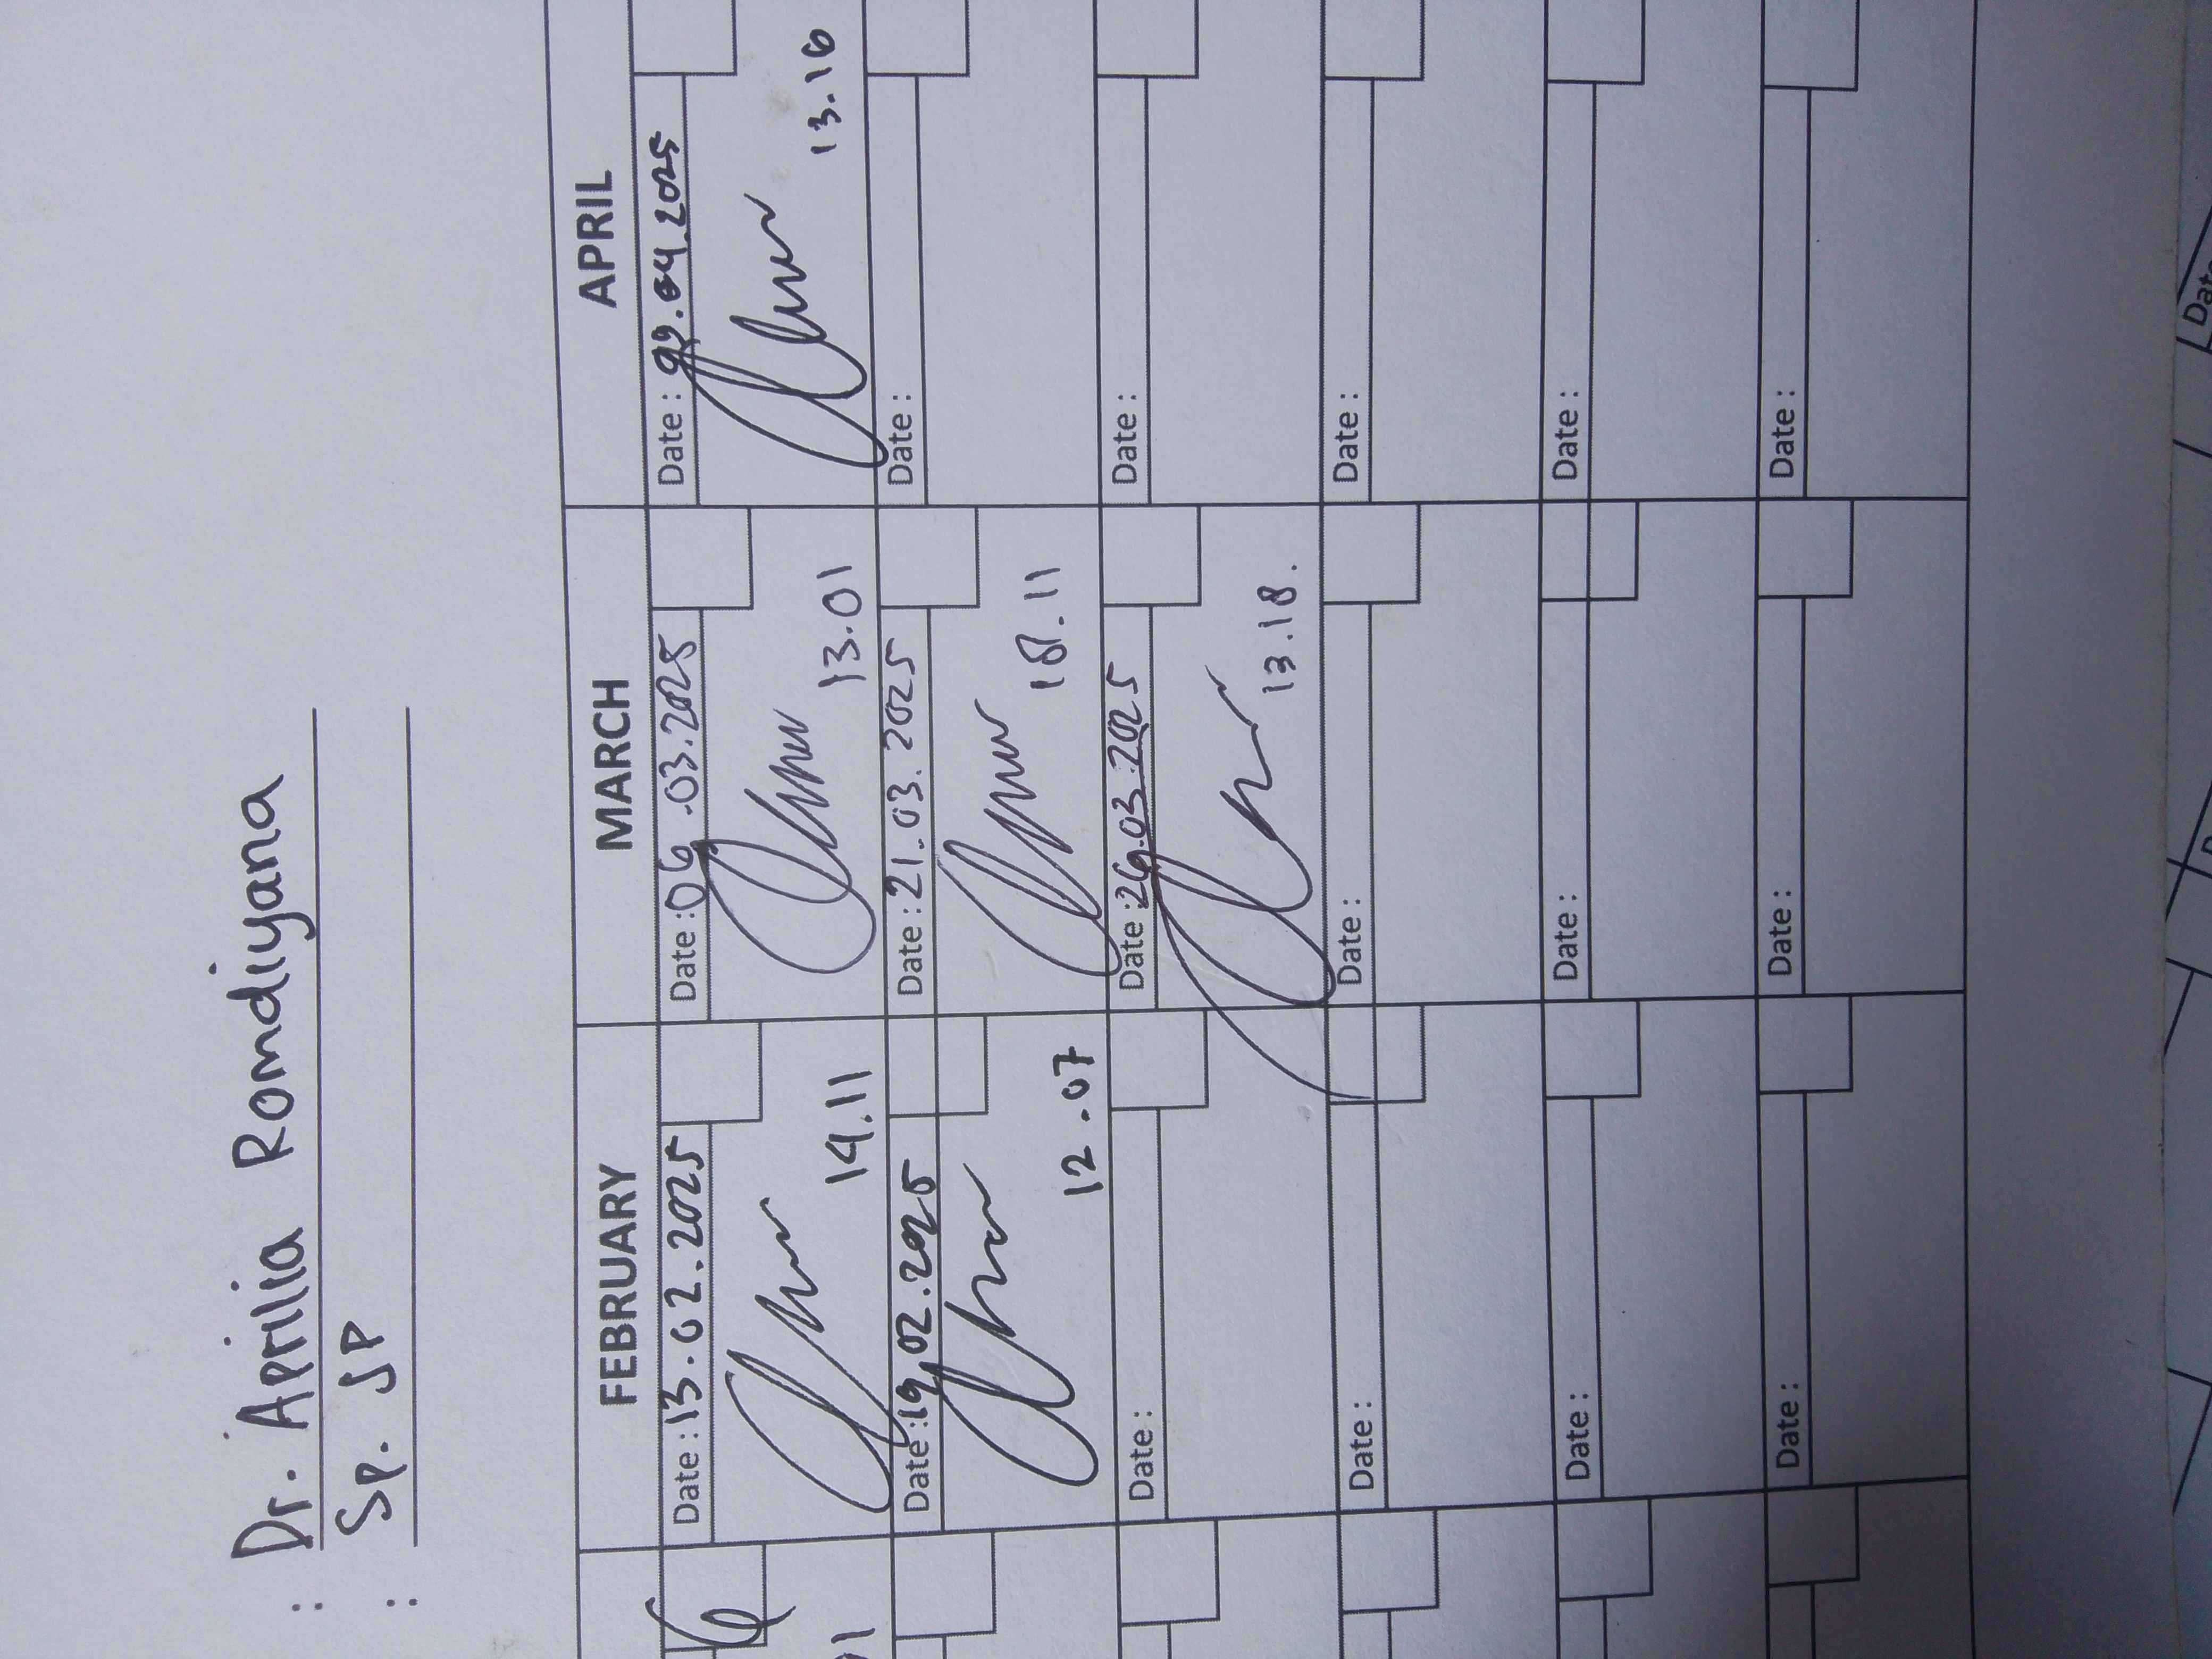 : Dr. Aprilia Romdiyana
: Sp. JP
FEBRUARY MARCH APRIL
Date : 13.02.2025 Date : 06.03.2025 Date : 09.04.2025
14.11 13.01 13.16
Date : 19.02.2025 Date : 21.03.2025 Date :
12.07 18.11
Date : Date : 26.03.2025 Date :
13.18.
Date : Date : Date :
Date : Date : Date :
Date : Date : Date :